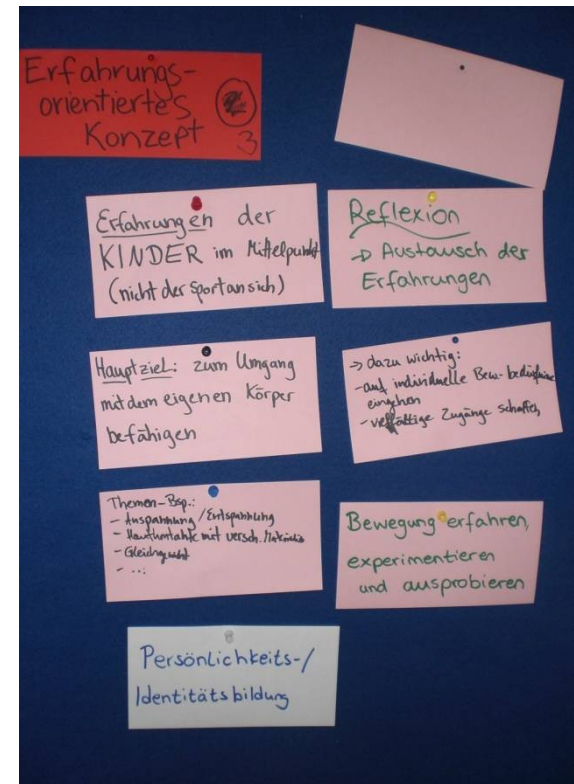 Erfahrungs-
orientiertes
Konzept 3
Erfahrungen der
KINDER im Mittelpunkt
(nicht der Sport an sich)
Reflexion
→ Austausch der
Erfahrungen
Hauptziel: zum Umgang
mit dem eigenen Körper
befähigen
→ dazu wichtig:
- auf individuelle Bew.-bedürfnisse
eingehen
- vielfältige Zugänge schaffen
Themen-Bsp.:
- Anspannung/Entspannung
- Hautkontakte mit versch. Materialien
- Gleichgewicht
- ...
Bewegung erfahren,
experimentieren
und ausprobieren
Persönlichkeits-/
Identitätsbildung